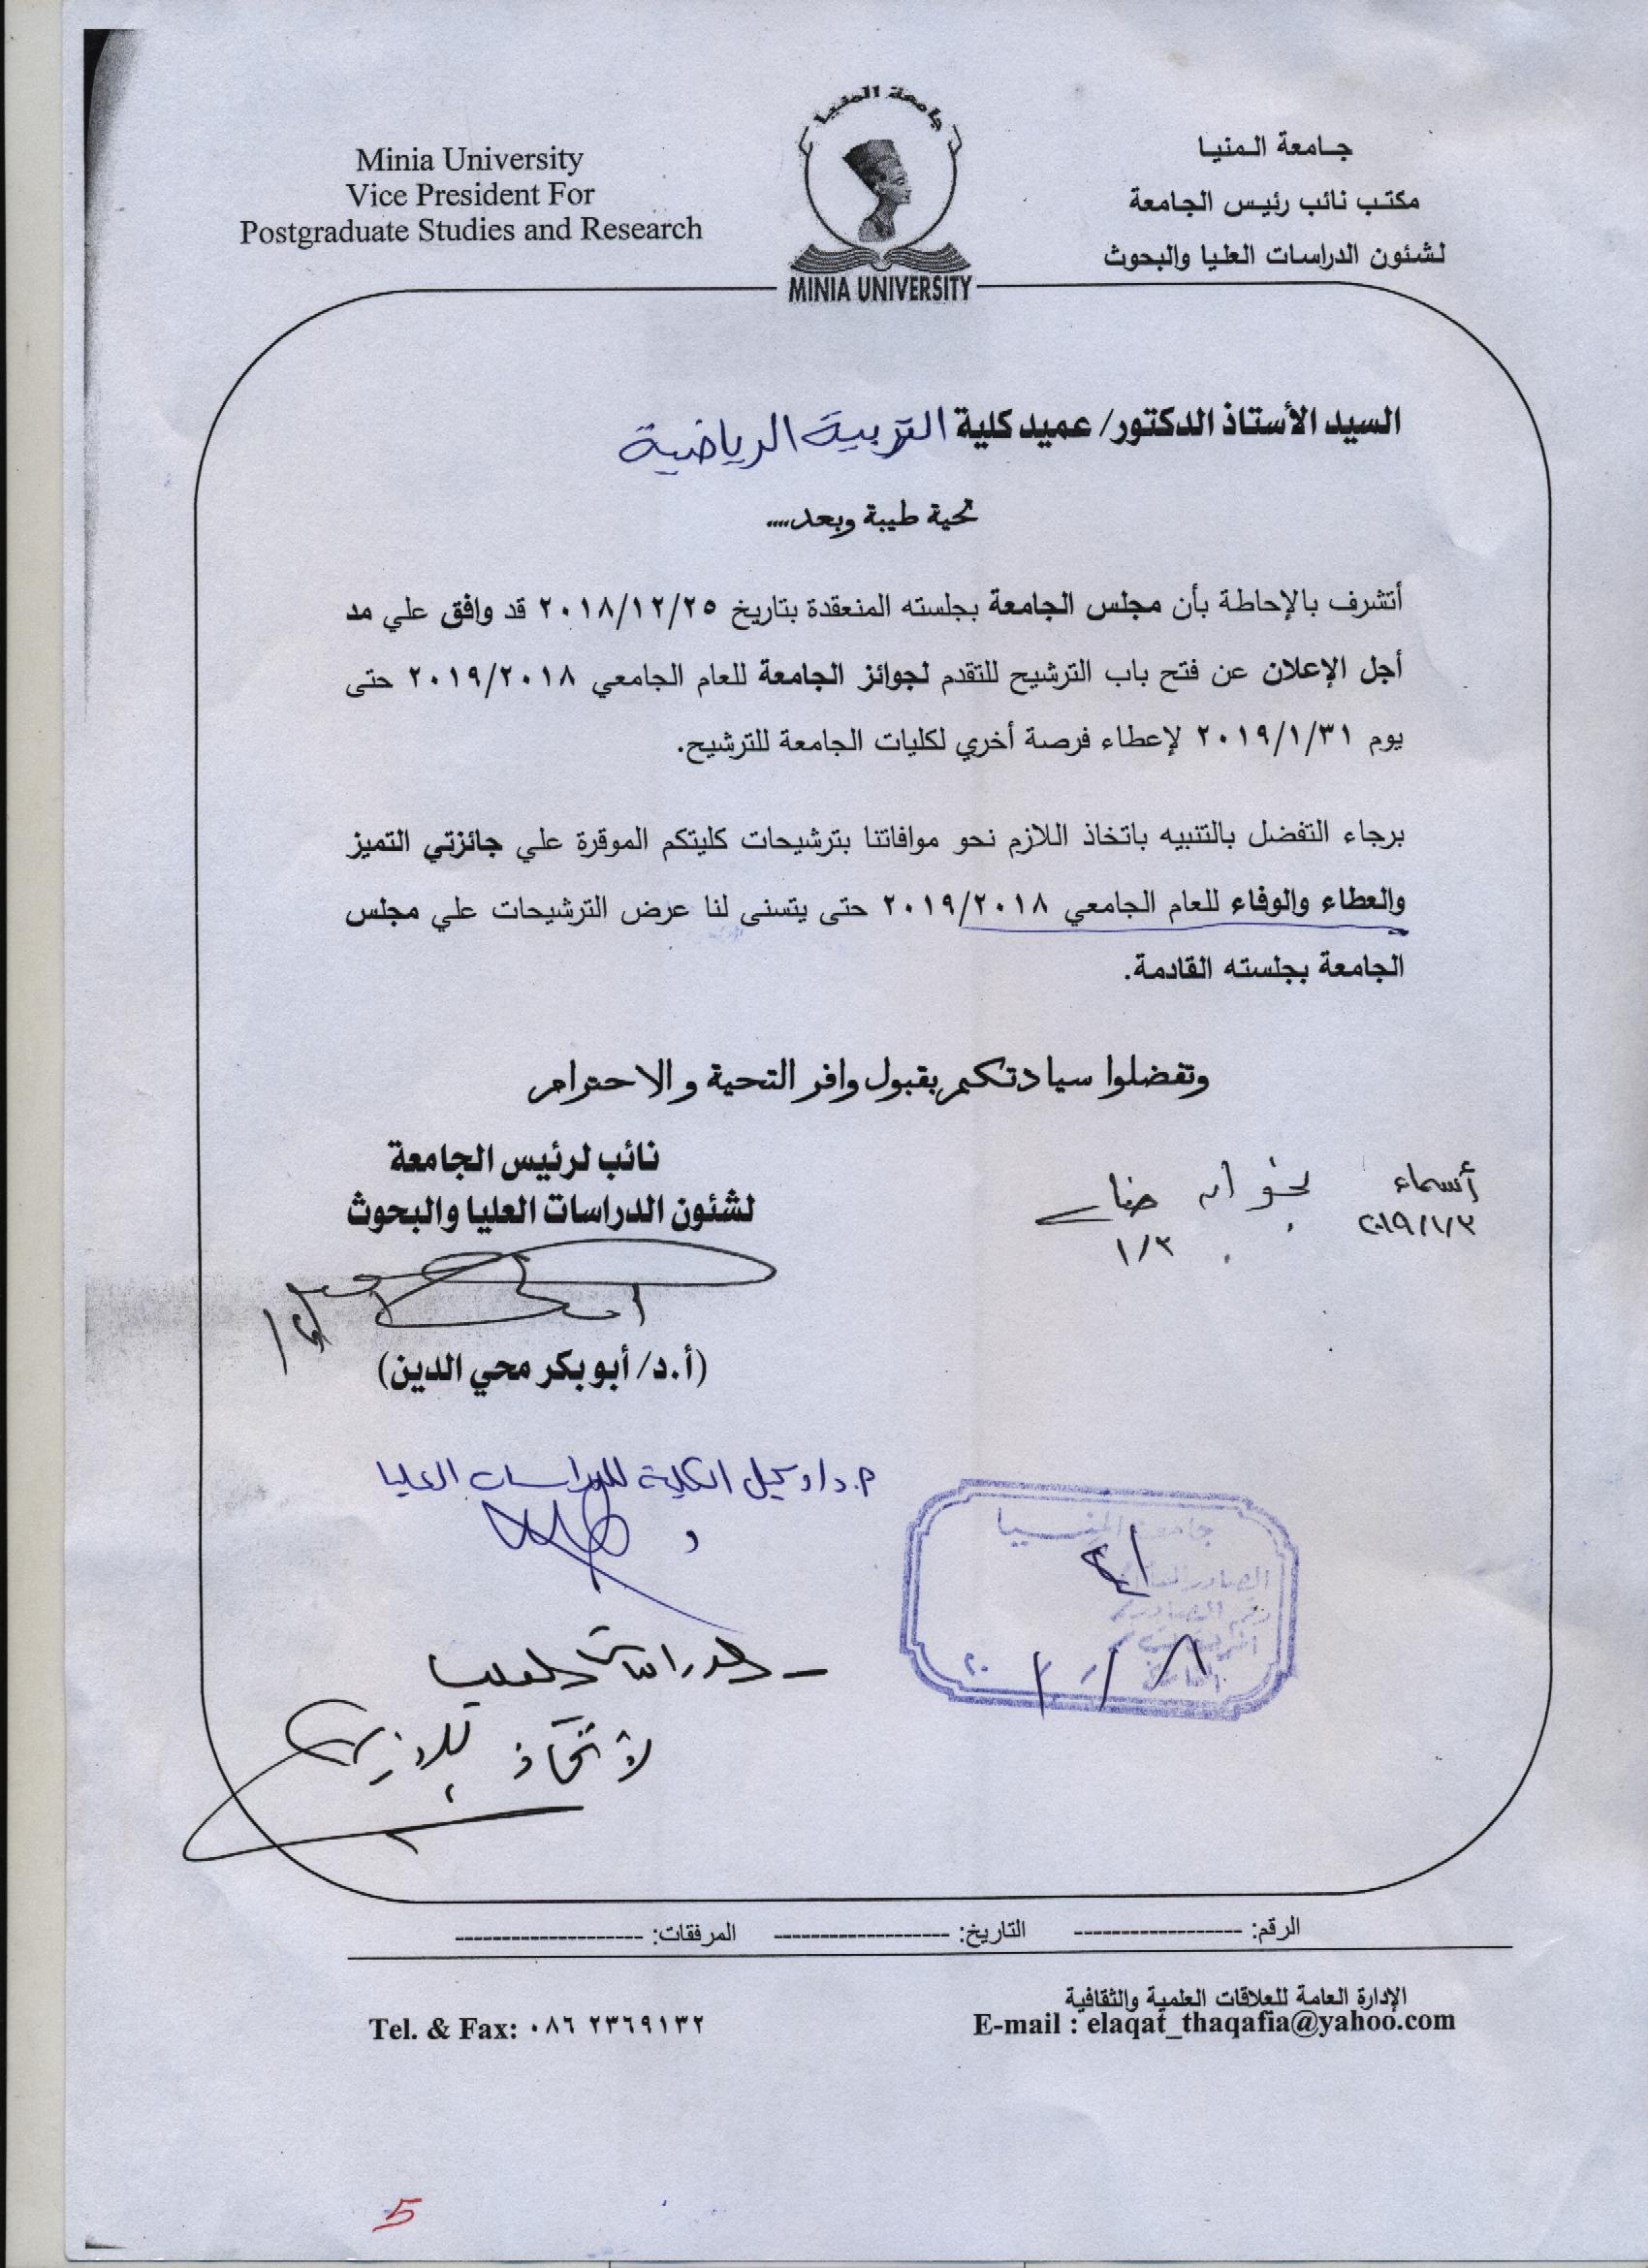 جامعة المنيا
Minia University
Vice President For
Postgraduate Studies and Research
MINIA UNIVERSITY
جامعة المنيا
مكتب نائب رئيس الجامعة
لشئون الدراسات العليا والبحوث
السيد الأستاذ الدكتور/ عميد كلية التربية الرياضية
تحية طيبة وبعد....
أتشرف بالإحاطة بأن مجلس الجامعة بجلسته المنعقدة بتاريخ ٢٠١٨/١٢/٢٥ قد وافق علي مد
أجل الإعلان عن فتح باب الترشيح للتقدم لجوائز الجامعة للعام الجامعي ٢٠١٩/٢٠١٨ حتى
يوم ٢٠١٩/١/٣١ لإعطاء فرصة أخري لكليات الجامعة للترشيح.
برجاء التفضل بالتنبيه باتخاذ اللازم نحو موافاتنا بترشيحات كليتكم الموقرة علي جائزتي التميز
والعطاء والوفاء للعام الجامعي ٢٠١٩/٢٠١٨ حتى يتسنى لنا عرض الترشيحات علي مجلس
الجامعة بجلسته القادمة.
وتفضلوا سيادتكم بقبول وافر التحية والاحترام
نائب لرئيس الجامعة
لشئون الدراسات العليا والبحوث
أسماء
٢٠١٩/١/٣
١/٣
(أ.د/ أبو بكر محي الدين)
وكيل الكلية للدراسات العليا
جامعة المنيا
الدراسات العليا
لاتخاذ اللازم
الرقم: ------------------ التاريخ: ------------------- المرفقات: --------------------
الإدارة العامة للعلاقات العلمية والثقافية
E-mail : elaqat_thaqafia@yahoo.com
Tel. & Fax: ٠٨٦ ٢٣٦٩١٣٢
5